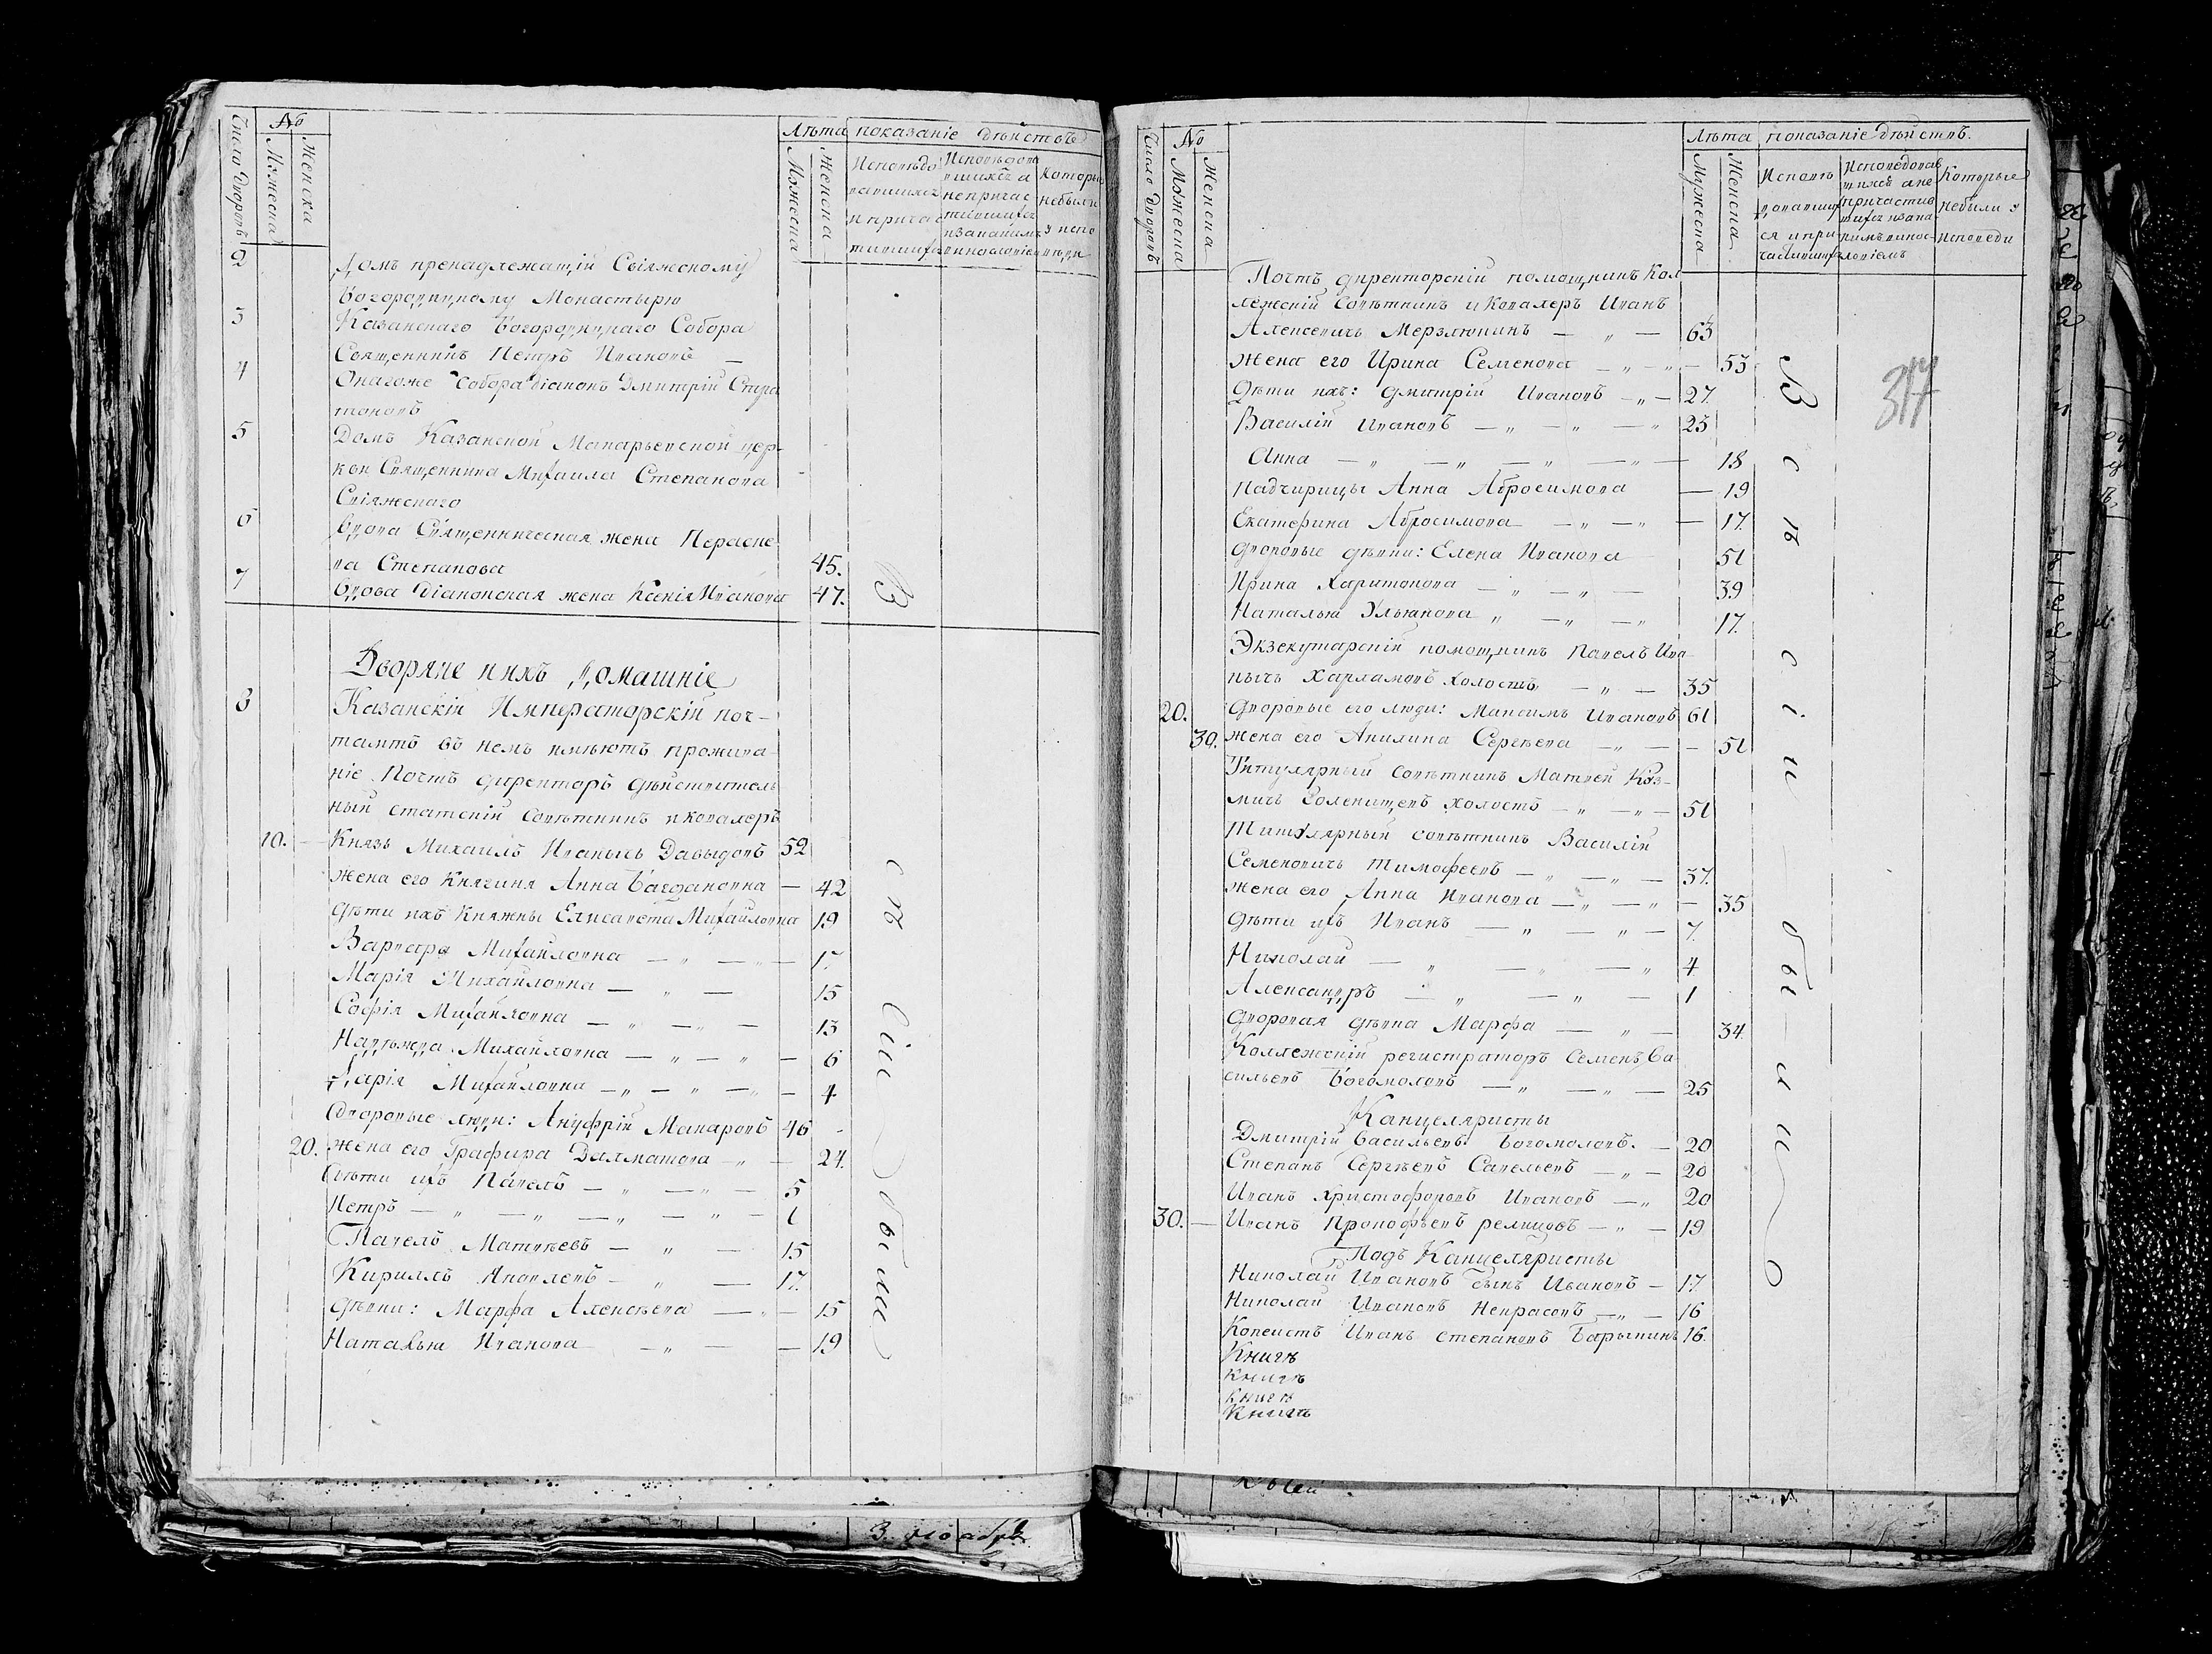 Число дворовъ
№
Мӯжеска
Женска
Лѣта
показаніе дѣйствъ
Мӯжеска
Женска
Исповѣдо
вавшихся
и причас
тившихся
Исповѣдова
вшихся а
непричас
тившихся
Которые
небыли
у испо
вѣди
2 Домъ пренадлежащій Свіяжскомӯ
Богородицкому Монастырю
3 Казанскаго Богородицкаго Собора
Священникъ Петръ Ивановъ —
4 Онагоже Собора діаконъ Дмитрій Стра
тоновъ
5 Домъ Казанской Макарьевской цер-
кви Священника Михаила Степанова
Свіяжскаго
6 Вдова Священническая жена Параске-
ва Степанова 45.
7 Вдова діаконская жена Ксенія Иванова 47.
Дворяне и ихъ домашніе
8 Казанскій Императорскій поч-
тамтъ въ немъ имѣютъ прожива-
ніе Почтъ директоръ дѣйствитель
ный статскій совѣтникъ и кавалеръ
10. — Князь Михаилъ Иванычь Давыдовъ 52
жена его Княгиня Анна Багдановна — 42
дѣти ихъ Княжны Елисавета Михайловна 19
Варвара Михайловна — „ — „ — 17.
Марія Михайловна — „ — 15
Софія Михайловна — „ — „ — 13
Надѣжда Михайловна — „ — „ — 6
Дарія Михайловна — „ — „ — „ — 4
Дворовые люди: Ануфрій Макаровъ 46
20. жена его Графира Далматова — „ — 24.
дѣти ихъ Павелъ — „ — „ — 5
Петръ — „ — „ — „ — „ — 1
Павелъ Матвѣевъ — „ — 15
Кириллъ Яковлевъ — „ — 17.
дѣвки: Марфа Алексѣева — „ — 15
Наталья Иванова — „ — — 19
Всѣ сіи были
3 ноября
Число дворовъ
№
Мӯжеска
Женска
Лѣта
показаніе дѣйствъ.
Мужеска
Женска
Исповѣ
довавших
ся и при-
частившихся
Исповѣдовав
шихся а не
причастив
шихся
Которые
небыли у
исповеди
Почтъ директорскій помощникъ Кол
лежскій Совѣтникъ и Кавалеръ Иванъ
Алексеевичь Мерзлюкинъ — „ — 63
жена его Ирина Семенова — „ — „ — 53
Дѣти ихъ: Дмитрій Ивановъ — „ — 27.
Василій Ивановъ — „ — „ — „ 23
Анна — „ — „ — „ — „ — 18
Падчирицы Анна Абросимова — 19
Екатерина Абросимова — „ — „ — 17.
Дворовые дѣвки: Елена Иванова 51
Ирина Харитонова — „ — „ — 39
Наталья Ульянова „ — „ — „ 17.
Экзекутарскій помощникъ Павелъ Ива
нычь Харламовъ холостъ — „ — 35
20. дворовые его люди: Максимъ Ивановъ 61
39. жена его Акилина Сергѣева — „ — — 51
Титулярный совѣтникъ Матвей Коз-
мичь Голенищевъ холостъ — „ — „ — 51
Титулярный совѣтникъ Василій
Семеновичь Тимофеевъ — „ — „ — 37.
жена его Анна Иванова — „ — „ — 35
дѣти ихъ Иванъ — „ — „ — 7.
Николай — „ — „ — „ 4
Александръ — „ — „ — 1
дворовая дѣвка Марфа — „ — 34.
Коллежскій регистраторъ Семенъ Ва
сильевъ Богомоловъ — „ — „ — 25
Канцеляристы
Дмитрій Васильевъ Богомоловъ. — 20
Степанъ Сергѣевъ Савельевъ — „ — 20
Иванъ Христофоровъ Ивановъ — „ 20
30. — Иванъ Прокофьевъ релицовъ — „ — 19
Подъ Канцеляристы
Николай Ивановъ сынъ Ивановъ — 17
Николай Ивановъ Некрасовъ — „ — 16
Копеистъ Иванъ степановъ Барышинъ 16.
Книгѣ
книгѣ
книгѣ
Книгѣ
Всѣ сіи были
317